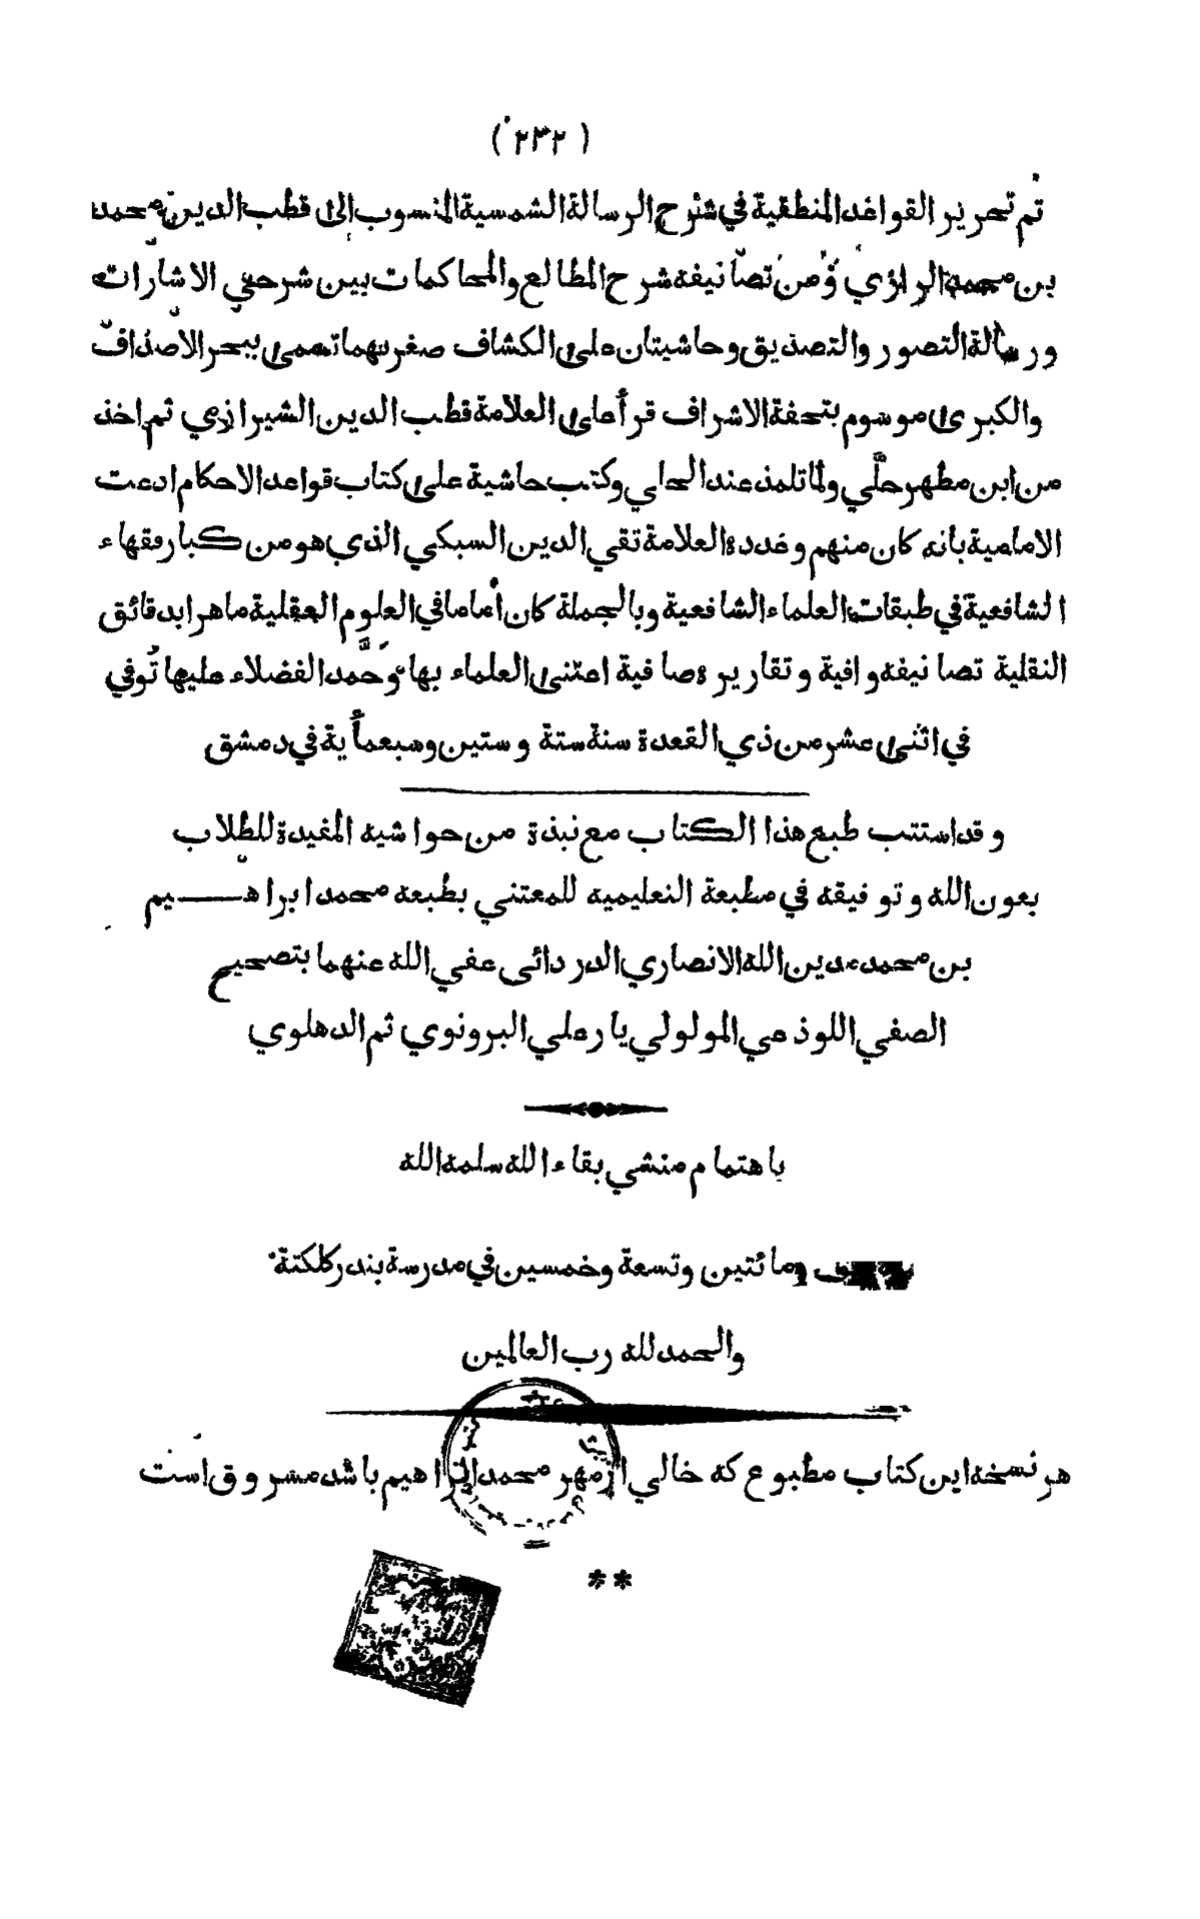 ( ٢٣٢ )
تم تحرير القواعد المنطقية في شرح الرسالة الشمسية المنسوب الى قطب الدين محمد
بن محمد الرازي ومن تصانيفه شرح المطالع والمحاكمات بين شرحي الاشارات
ورسالة التصور والتصديق وحاشيتان على الكشاف صغريهما تسمى ببحر الاصداف
والكبرى موسوم بتحفة الاشراف قرأ على العلامة قطب الدين الشيرازي ثم اخذ
من ابن مطهر حلّي ولما تلمذ عند الحلي وكتب حاشية على كتاب قواعد الاحكام ادعت
الامامية بانه كان منهم وعدده العلامة تقي الدين السبكي الذي هو من كبار فقهاء
الشافعية في طبقات العلماء الشافعية وبالجملة كان أماما في العلوم العقلية ماهرا بدقائق
النقلية تصانيفه وافية وتقاريره صافية اعتنى العلماء بها وحمد الفضلاء عليها تُوفي
في اثنى عشر من ذي القعدة سنة ستة وستين وسبعمأية في دمشق
وقد استتب طبع هذا الكتاب مع نبذة من حواشيه المفيدة للطلاب
بعون الله وتوفيقه في مطبعة التعليميه للمعتني بطبعه محمد ابراهـــيم
بن محمد مدين الله الانصاري الدردائى عفي الله عنهما بتصحيح
الصفي اللوذعي المولولي يار علي البرونوي ثم الدهلوي
باهتمام منشي بقاء الله سلمه الله
ومائتين وتسعة وخمسين في مدرسة بندر كلكتة
والحمد لله رب العالمين
هر نسخه اين كتاب مطبوع كه خالي از مهر محمد ابراهيم باشد مسروق است
**